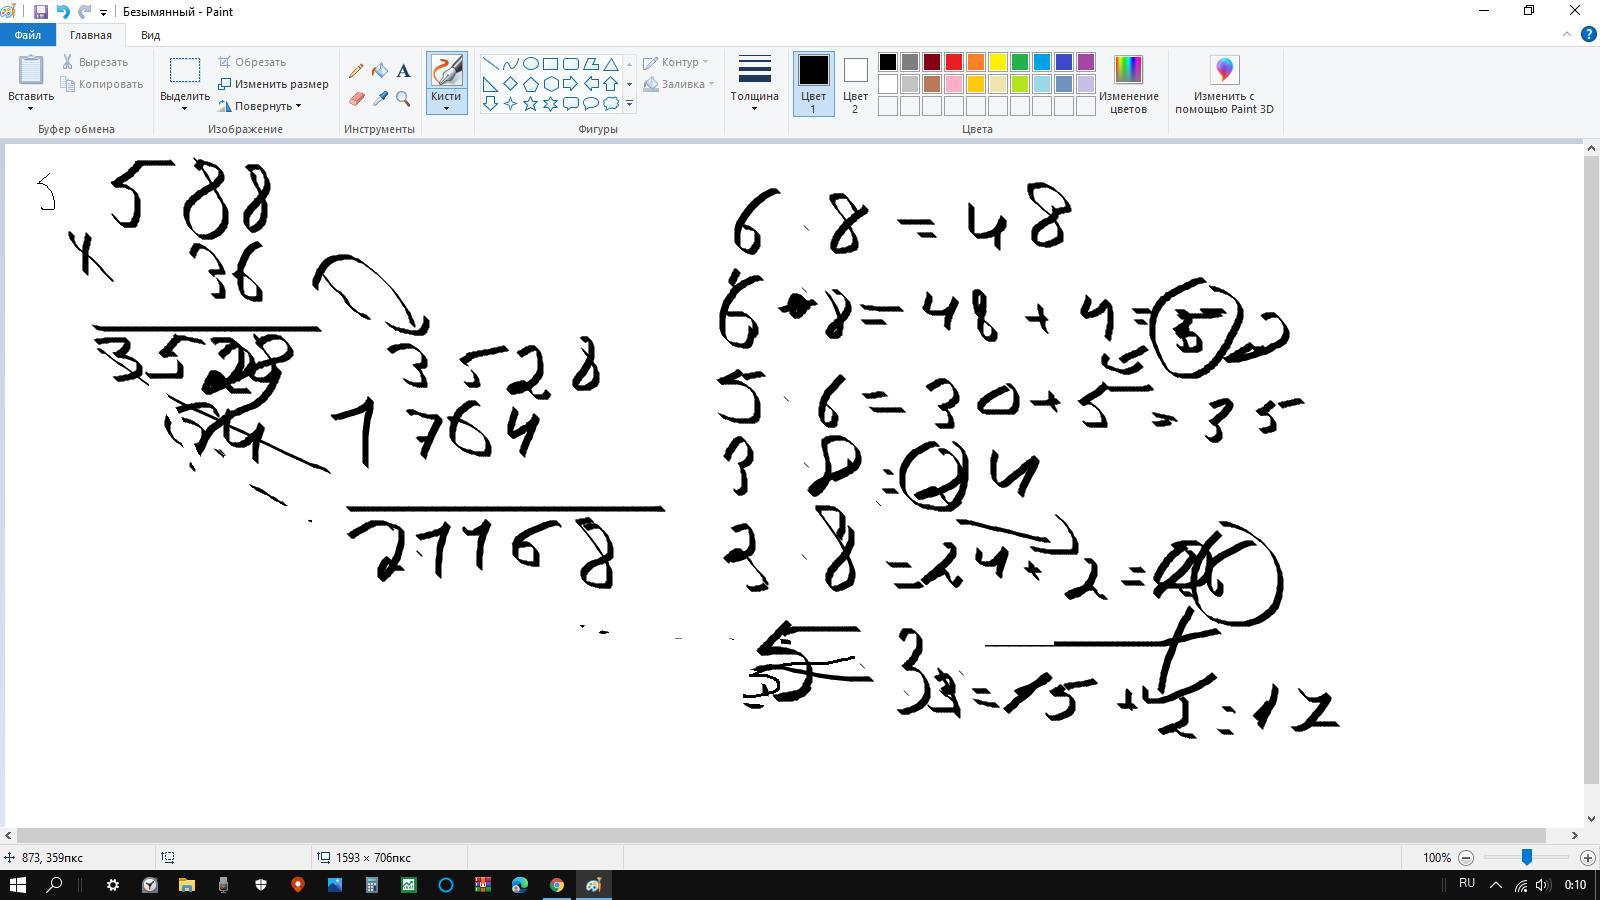 Безымянный - Paint
Файл Главная Вид
Вставить
Вырезать
Копировать
Буфер обмена
Выделить
Обрезать
Изменить размер
Повернуть
Изображение
Инструменты
Кисти
Контур
Заливка
Фигуры
Толщина
Цвет 1
Цвет 2
Изменение цветов
Цвета
Изменить с помощью Paint 3D
5 588
x 36
3528
3 528
1 764
21168
6 · 8 = 48
6 · 8 = 48 + 4 = 52
5 · 6 = 30 + 5 = 35
3 · 8 = 24
3 · 8 = 24 + 2 = 26
5 · 3 = 15 + 2 = 17
873, 359пкс
1593 × 706пкс
100%
RU
0:10